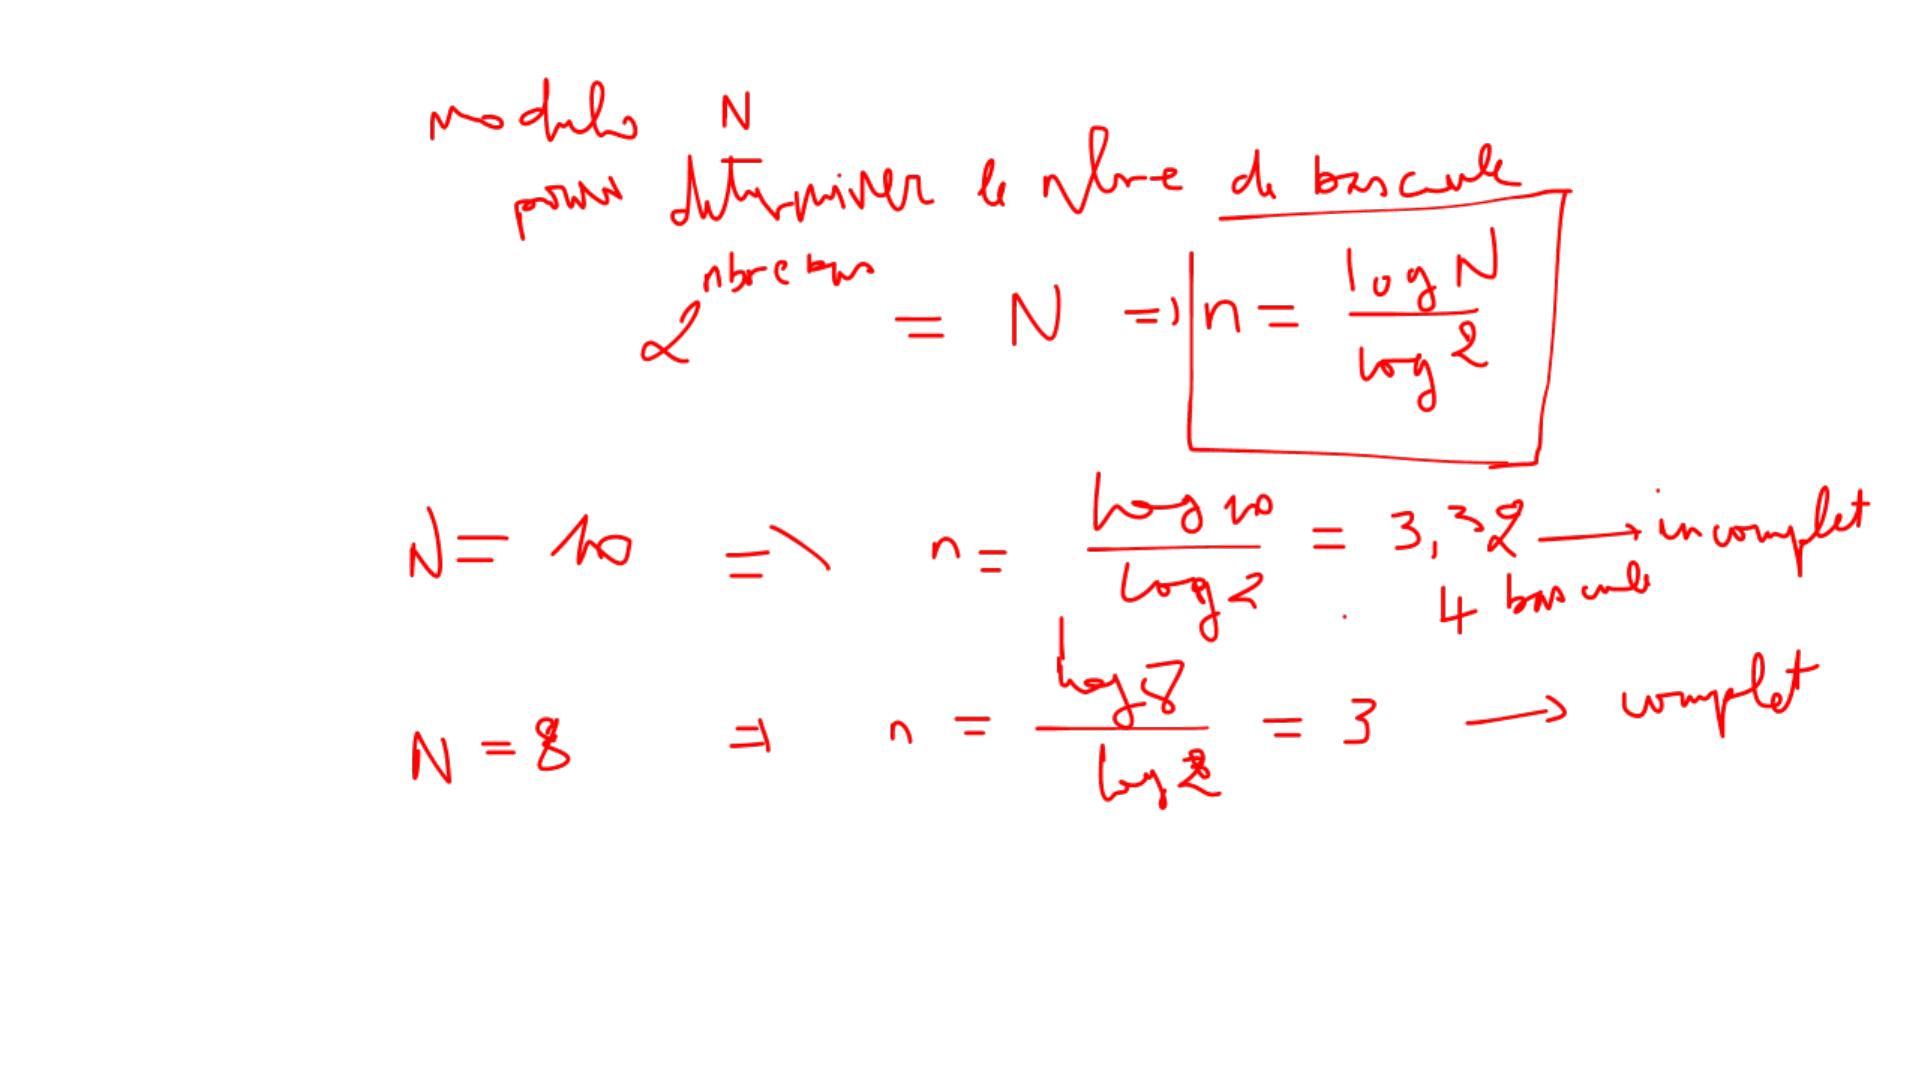 modulo N
pour déterminer le nbre de bascule
2^nbre bas = N => n = log N / log 2
N = 10 => n = log 10 / log 2 = 3,32 → incomplet
4 bascule
N = 8 => n = log 8 / log 2 = 3 → complet